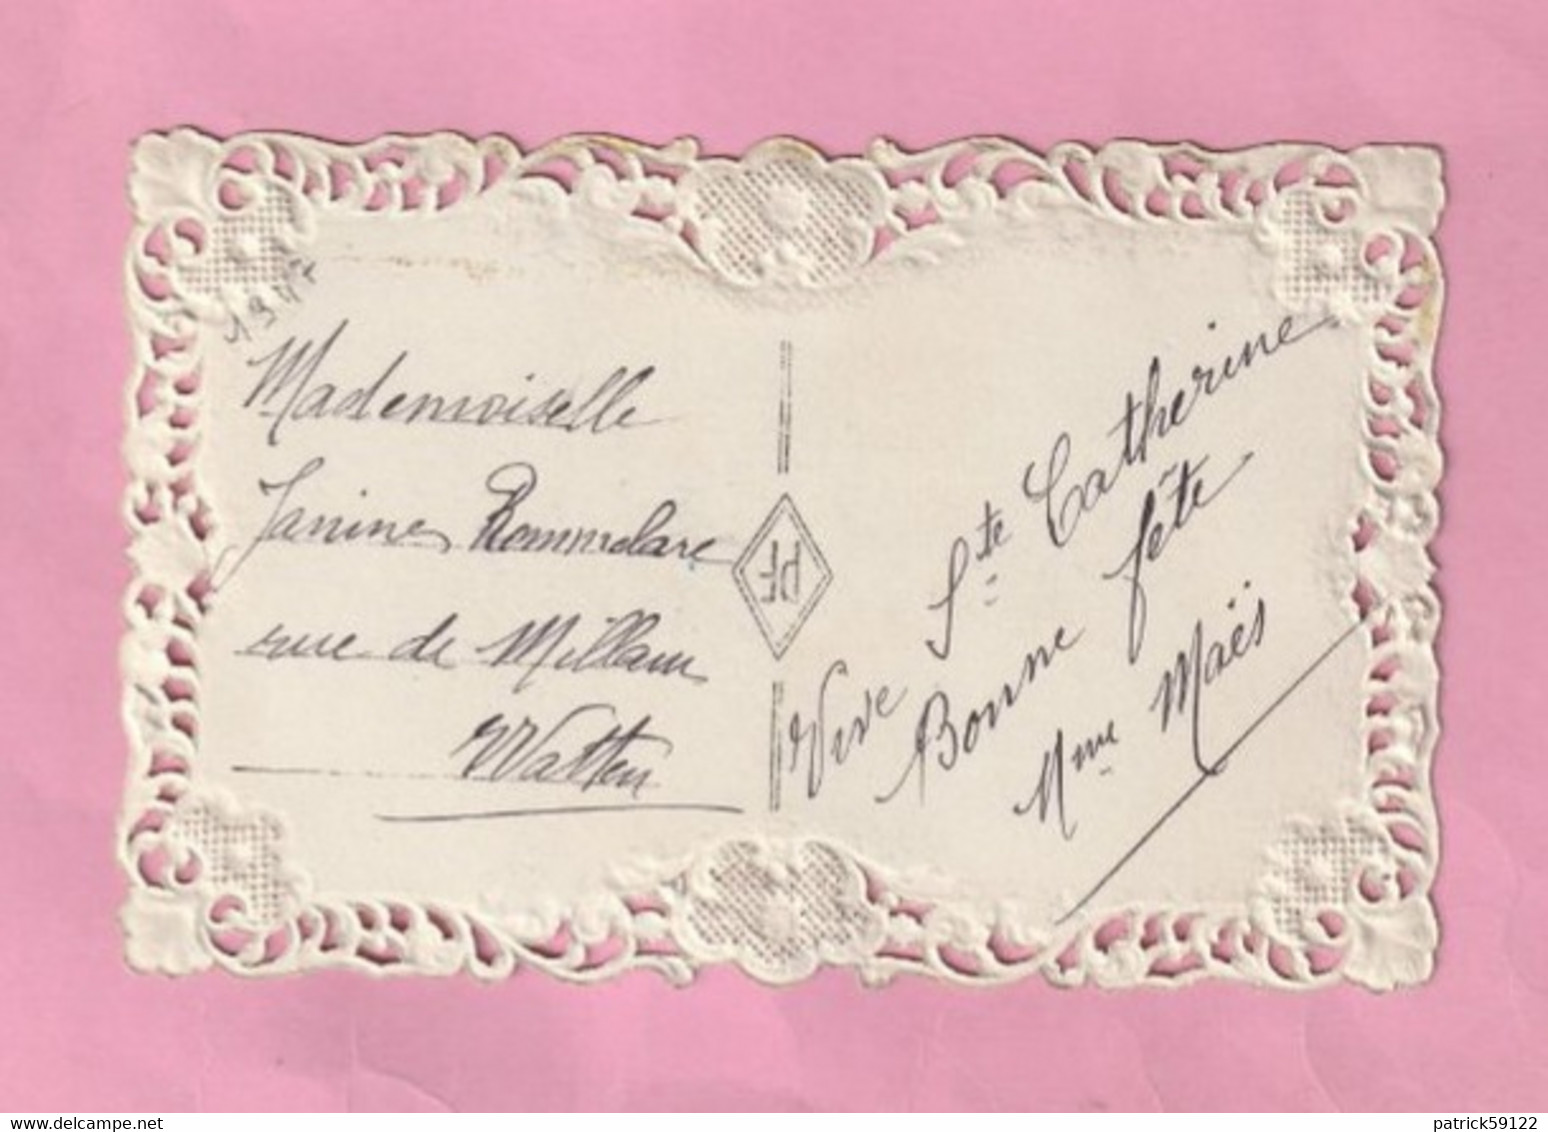 Mademoiselle
Janine Rommelare
rue de Millam
Watten
PF
Vive Ste Catherine
Bonne fête
Mme Maës
delcampe.net
patrick59122